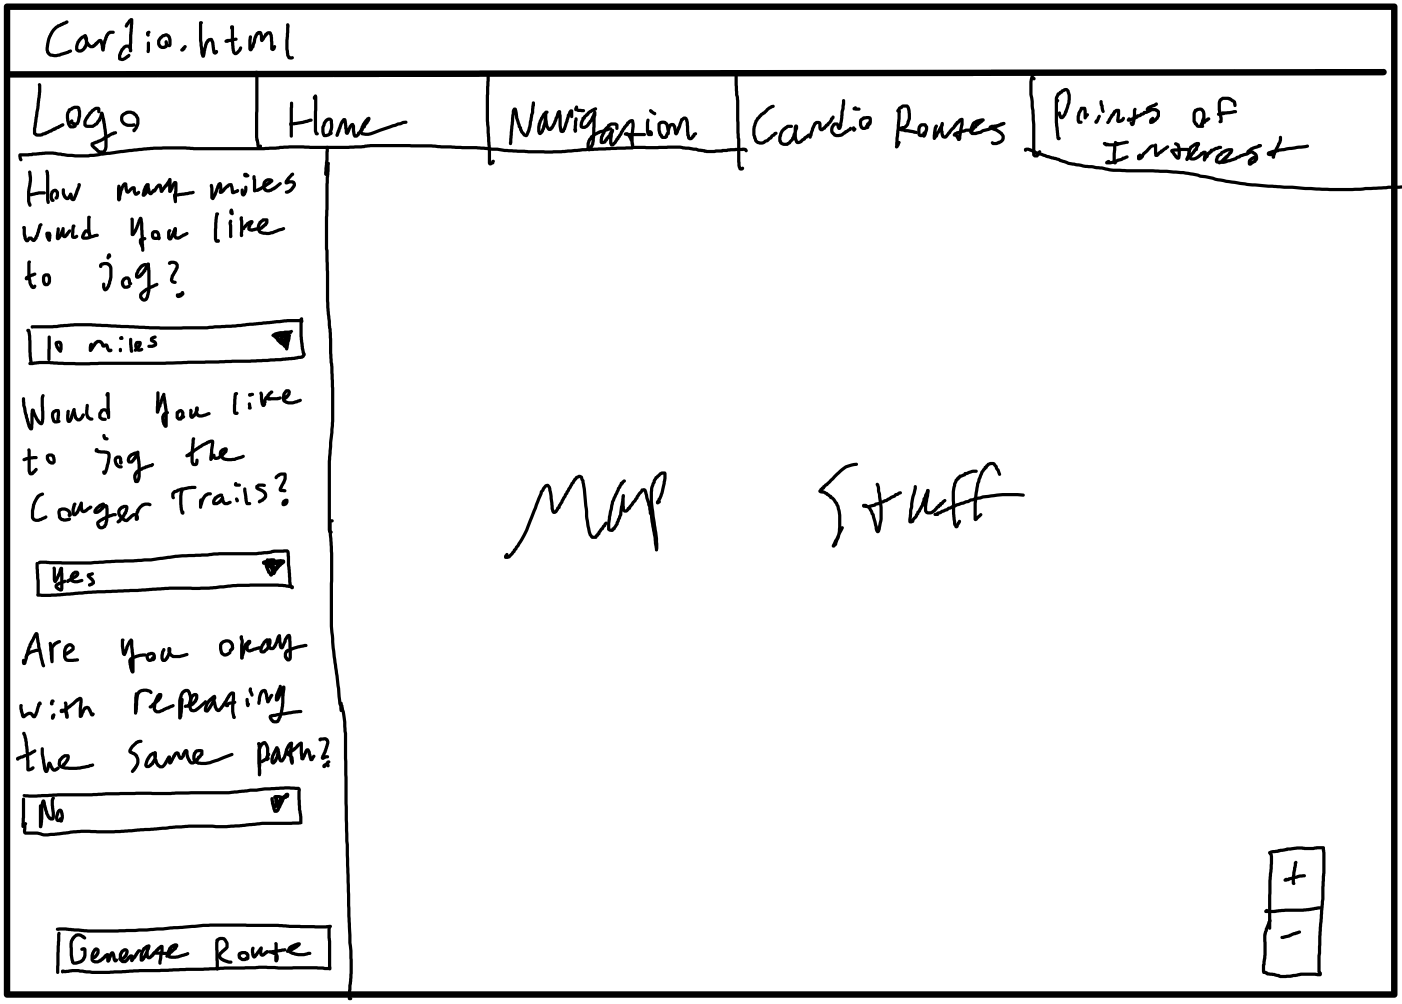 Cardio.html
Logo
Home
Navigation
Cardio Routes
Points of
Interest
How many miles
would you like
to jog?
10 miles
Would you like
to jog the
Couger Trails?
Yes
Are you okay
with repeating
the same path?
No
Generate Route
Map Stuff
+
-